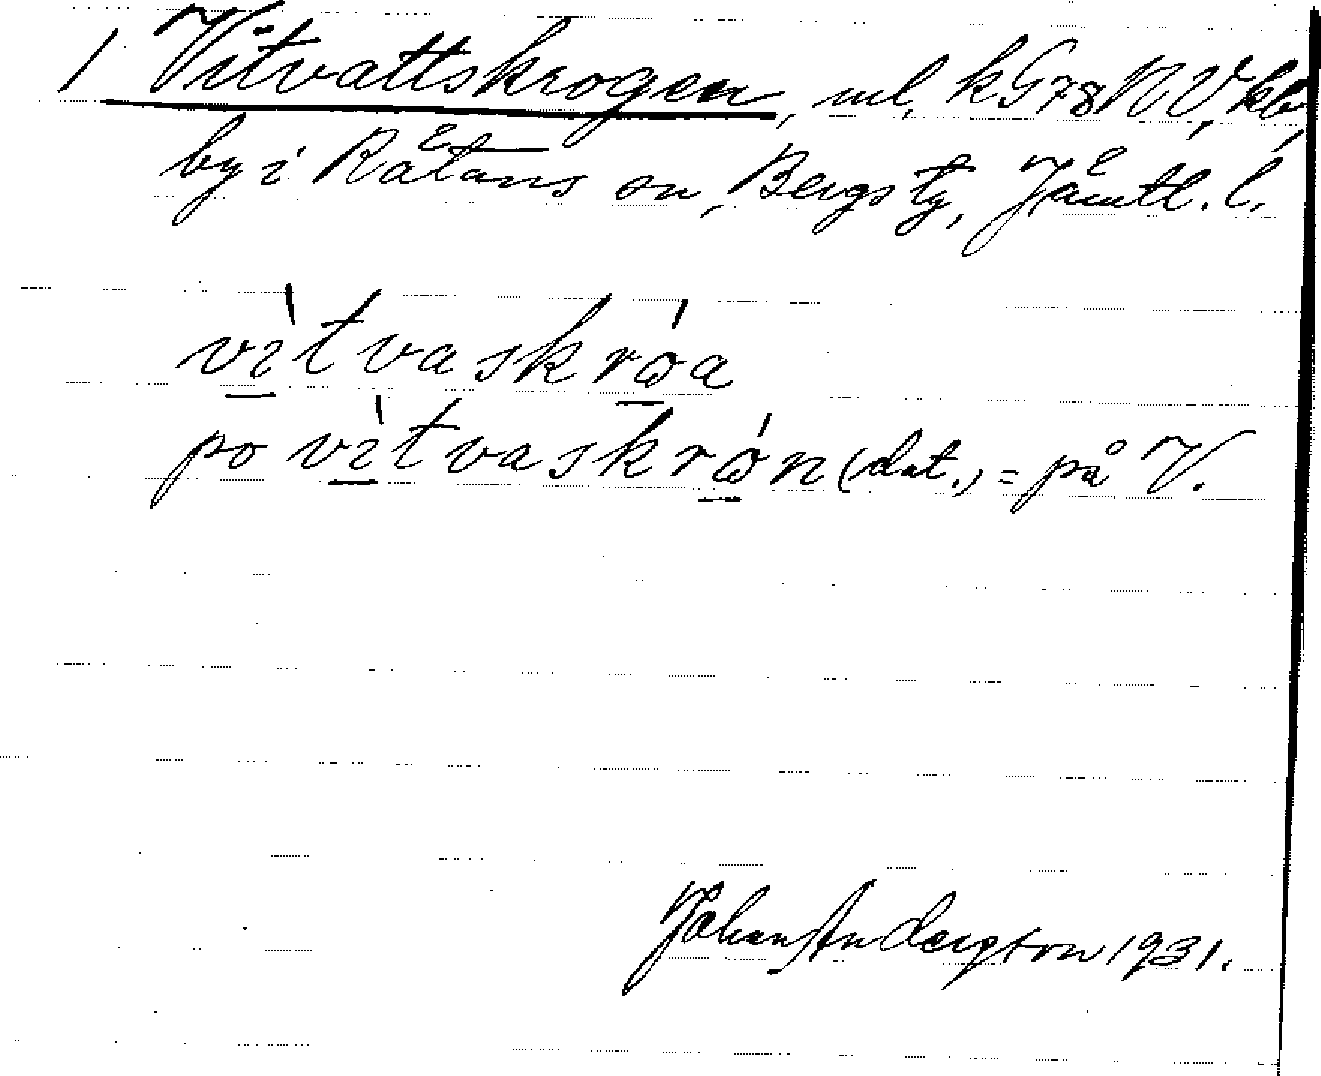 1 Vitvattskrogen, ml. kG78NV, kb,
by i Rätans sn, Bergs tg, Jämtl. l.
vìtvaskróa
po vìtvaskrón (dat.) = på V.
Johan Anderzson 1931.